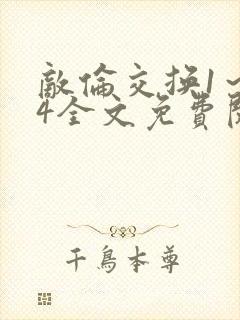 敵倫交换1～
4全文免費閱
千鳥本尊